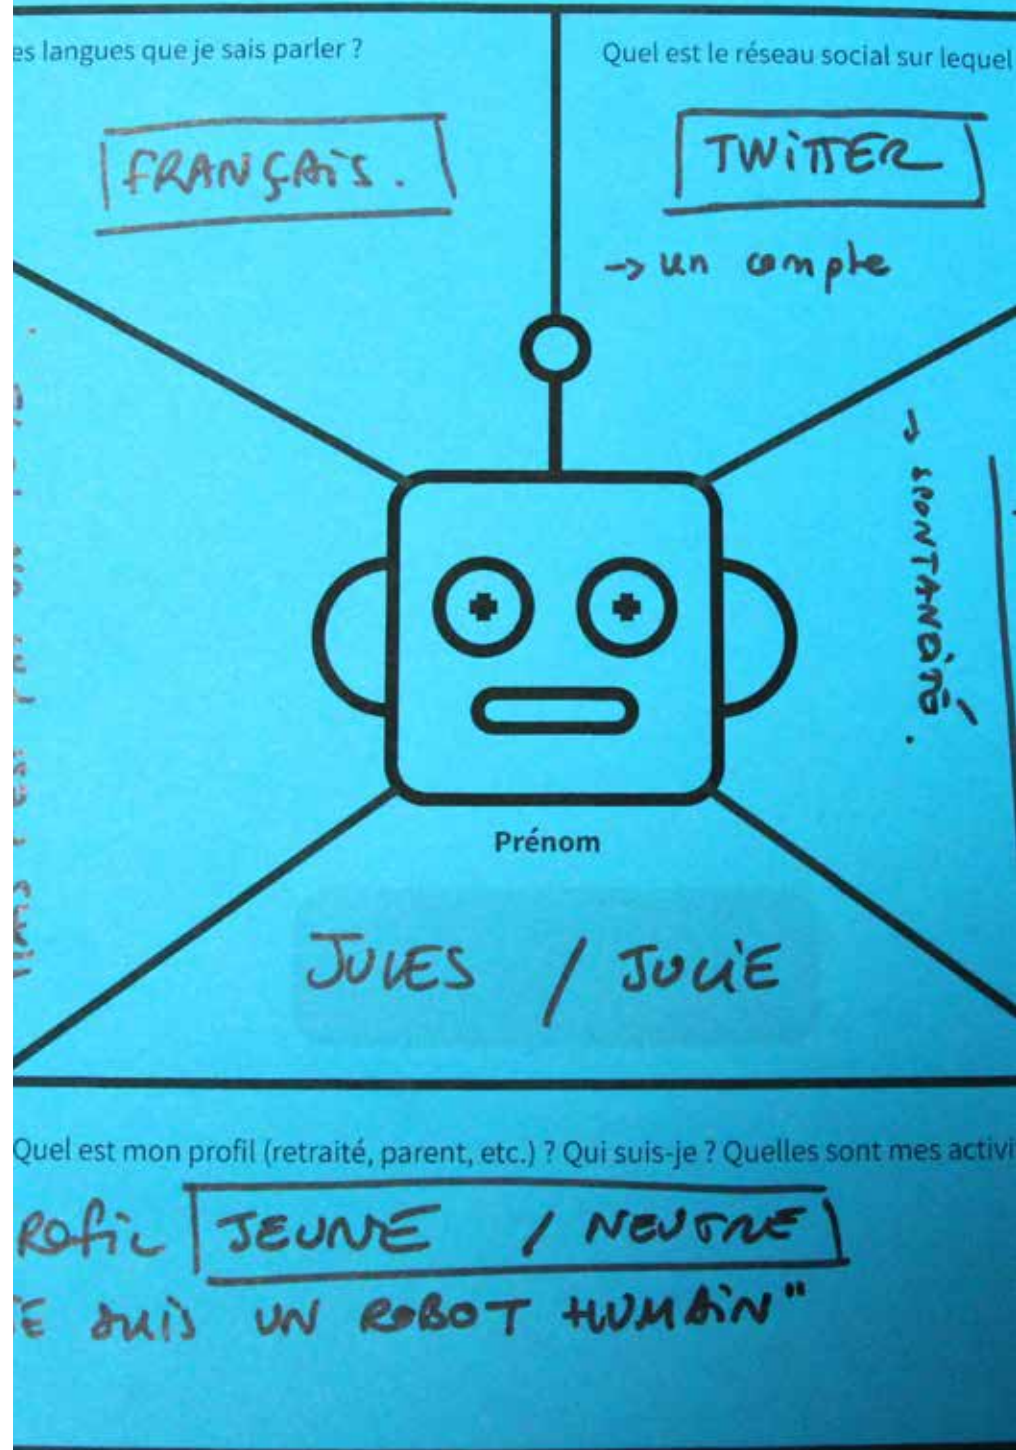 es langues que je sais parler ?
Quel est le réseau social sur lequel
FRANÇAiS.
TWiTTER
-> un compte
→ SPONTANéiTé.
Prénom
JULES / JULiE
Quel est mon profil (retraité, parent, etc.) ? Qui suis-je ? Quelles sont mes activi
Rofil JEUNE / NEUTRE
E suis UN ROBOT HUMAiN"